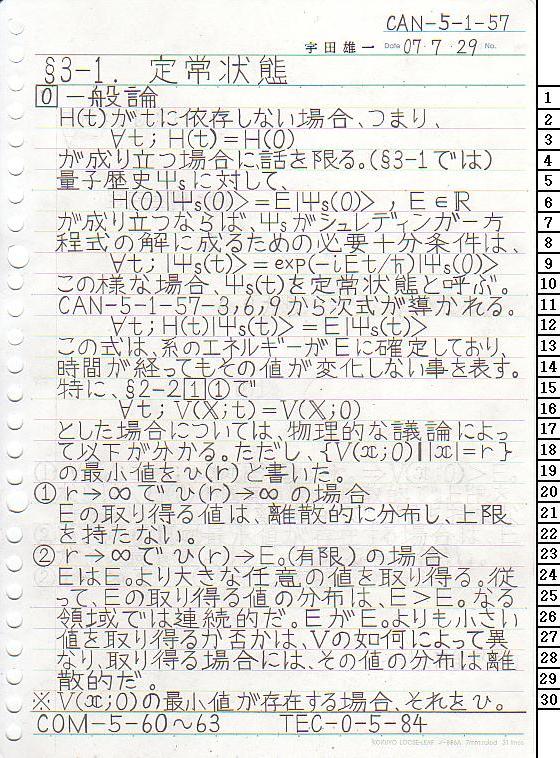 CAN-5-1-57
宇田雄一 Date 07・7・29 No.
§3-1. 定常状態
0 一般論 1
H(t)がtに依存しない場合、つまり、 2
∀t; H(t)=H(0) 3
が成り立つ場合に話を限る。(§3-1では) 4
量子歴史Ψsに対して、 5
H(0)|Ψs(0)>=E|Ψs(0)> , E∈ℝ 6
が成り立つならば、Ψsがシュレディンガー方 7
程式の解に成るための必要十分条件は、 8
∀t; |Ψs(t)>=exp(-iEt/ℏ)|Ψs(0)> 9
この様な場合、Ψs(t)を定常状態と呼ぶ。 10
CAN-5-1-57-3,6,9から次式が導かれる。 11
∀t; H(t)|Ψs(t)>=E|Ψs(t)> 12
この式は、系のエネルギーがEに確定しており、 13
時間が経ってもその値が変化しない事を表す。 14
特に、§2-2 1 ①で 15
∀t; V(𝕏;t)=V(𝕏;0) 16
とした場合については、物理的な議論によっ 17
て以下が分かる。ただし、{V(x;0)||x|=r} 18
の最小値をv(r)と書いた。 19
① r→∞でv(r)→∞の場合 20
Eの取り得る値は、離散的に分布し、上限 21
を持たない。 22
② r→∞でv(r)→E₀(有限)の場合 23
EはE₀より大きな任意の値を取り得る。従 24
って、Eの取り得る値の分布は、E>E₀なる 25
領域では連続的だ。EがE₀よりも小さい 26
値を取り得るか否かは、Vの如何によって異 27
なり、取り得る場合には、その値の分布は離 28
散的だ。 29
※ V(x;0)の最小値が存在する場合、それをv。 30
COM-5-60~63 TEC-0-5-84
KOKUYO LOOSE-LEAF ノ-836A 7mm ruled 31 lines